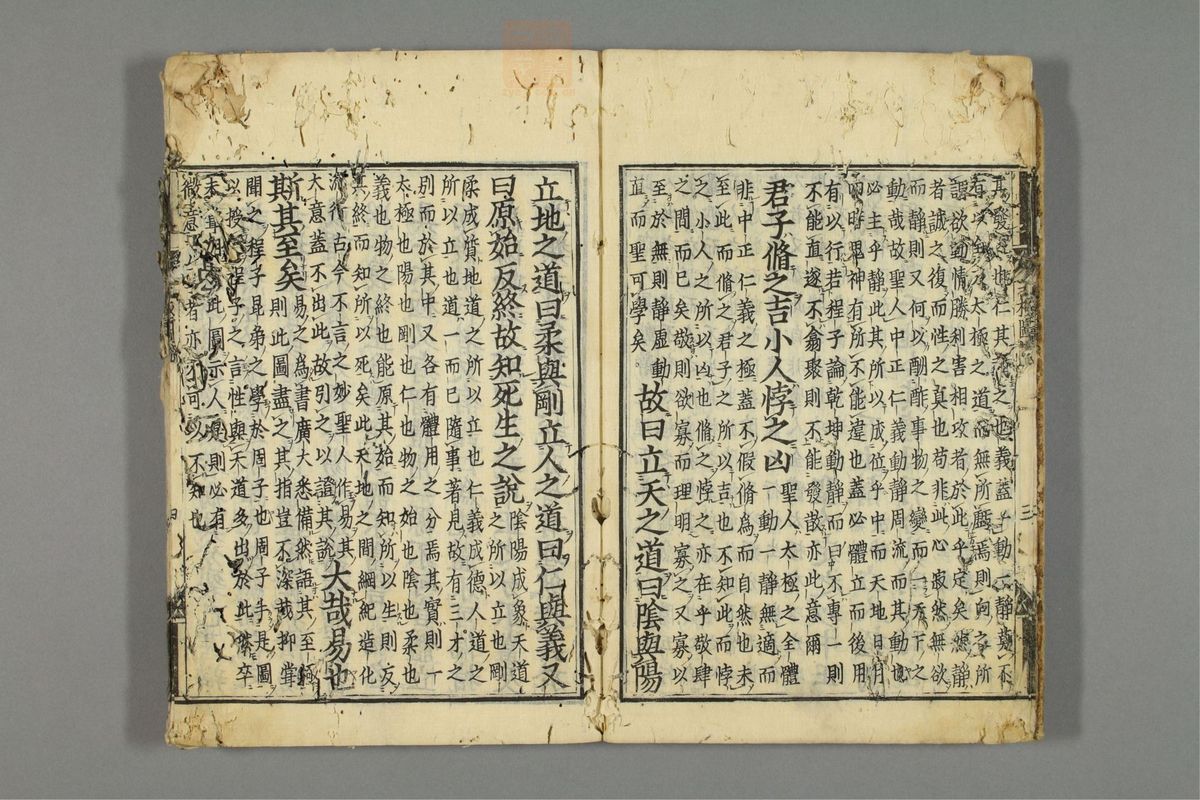 發之也仁其裁之也義蓋一動一靜莫不
有以全夫太極之道而無所虧焉則向之所
謂欲動情勝利害相攻者於此乎定矣然靜
者誠之復而性之真也苟非此心寂然無欲
而靜則又何以酬酢事物之變而一天下之
動哉故聖人中正仁義動靜周流而其動也
必主乎靜此其所以成位乎中而天地日月
四時鬼神有所不能違也蓋必體立而後用
有以行若程子論乾坤動靜而曰不專一則
不能直遂不翕聚則不能發散亦此意爾
君子脩之吉小人悖之凶
聖人太極之全體
一動一靜無適而
非中正仁義之極蓋不假脩為而自然也未
至此而脩之君子之所以吉也不知此而悖
之小人之所以凶也脩之悖之亦在乎敬肆
之間而已矣敬則欲寡而理明寡之又寡以
至於無則靜虛動
直而聖可學矣
故曰立天之道曰陰與陽
立地之道曰柔與剛立人之道曰仁與義又
曰原始反終故知死生之說
陰陽成象天道
之所以立也剛
柔成質地道之所以立也仁義成德人道之
所以立也道一而已隨事著見故有三才之
別而於其中又各有體用之分焉其實則一
太極也陽也剛也仁也物之始也陰也柔也
義也物之終也能原其始而知所以生則反
其終而知所以死矣此天地之間綱紀造化
流行古今不言之妙聖人作易其
大意蓋不出此故引之以證其說
大哉易也
斯其至矣
易之為書廣大悉備然語其至極
則此圖盡之其指豈不深哉抑嘗
聞之程子昆弟之學於周子也周子手是圖
以授之程子之言性與天道多出於此然卒
未嘗明以此圖示人是則必有
微意焉學者亦不可以不知也